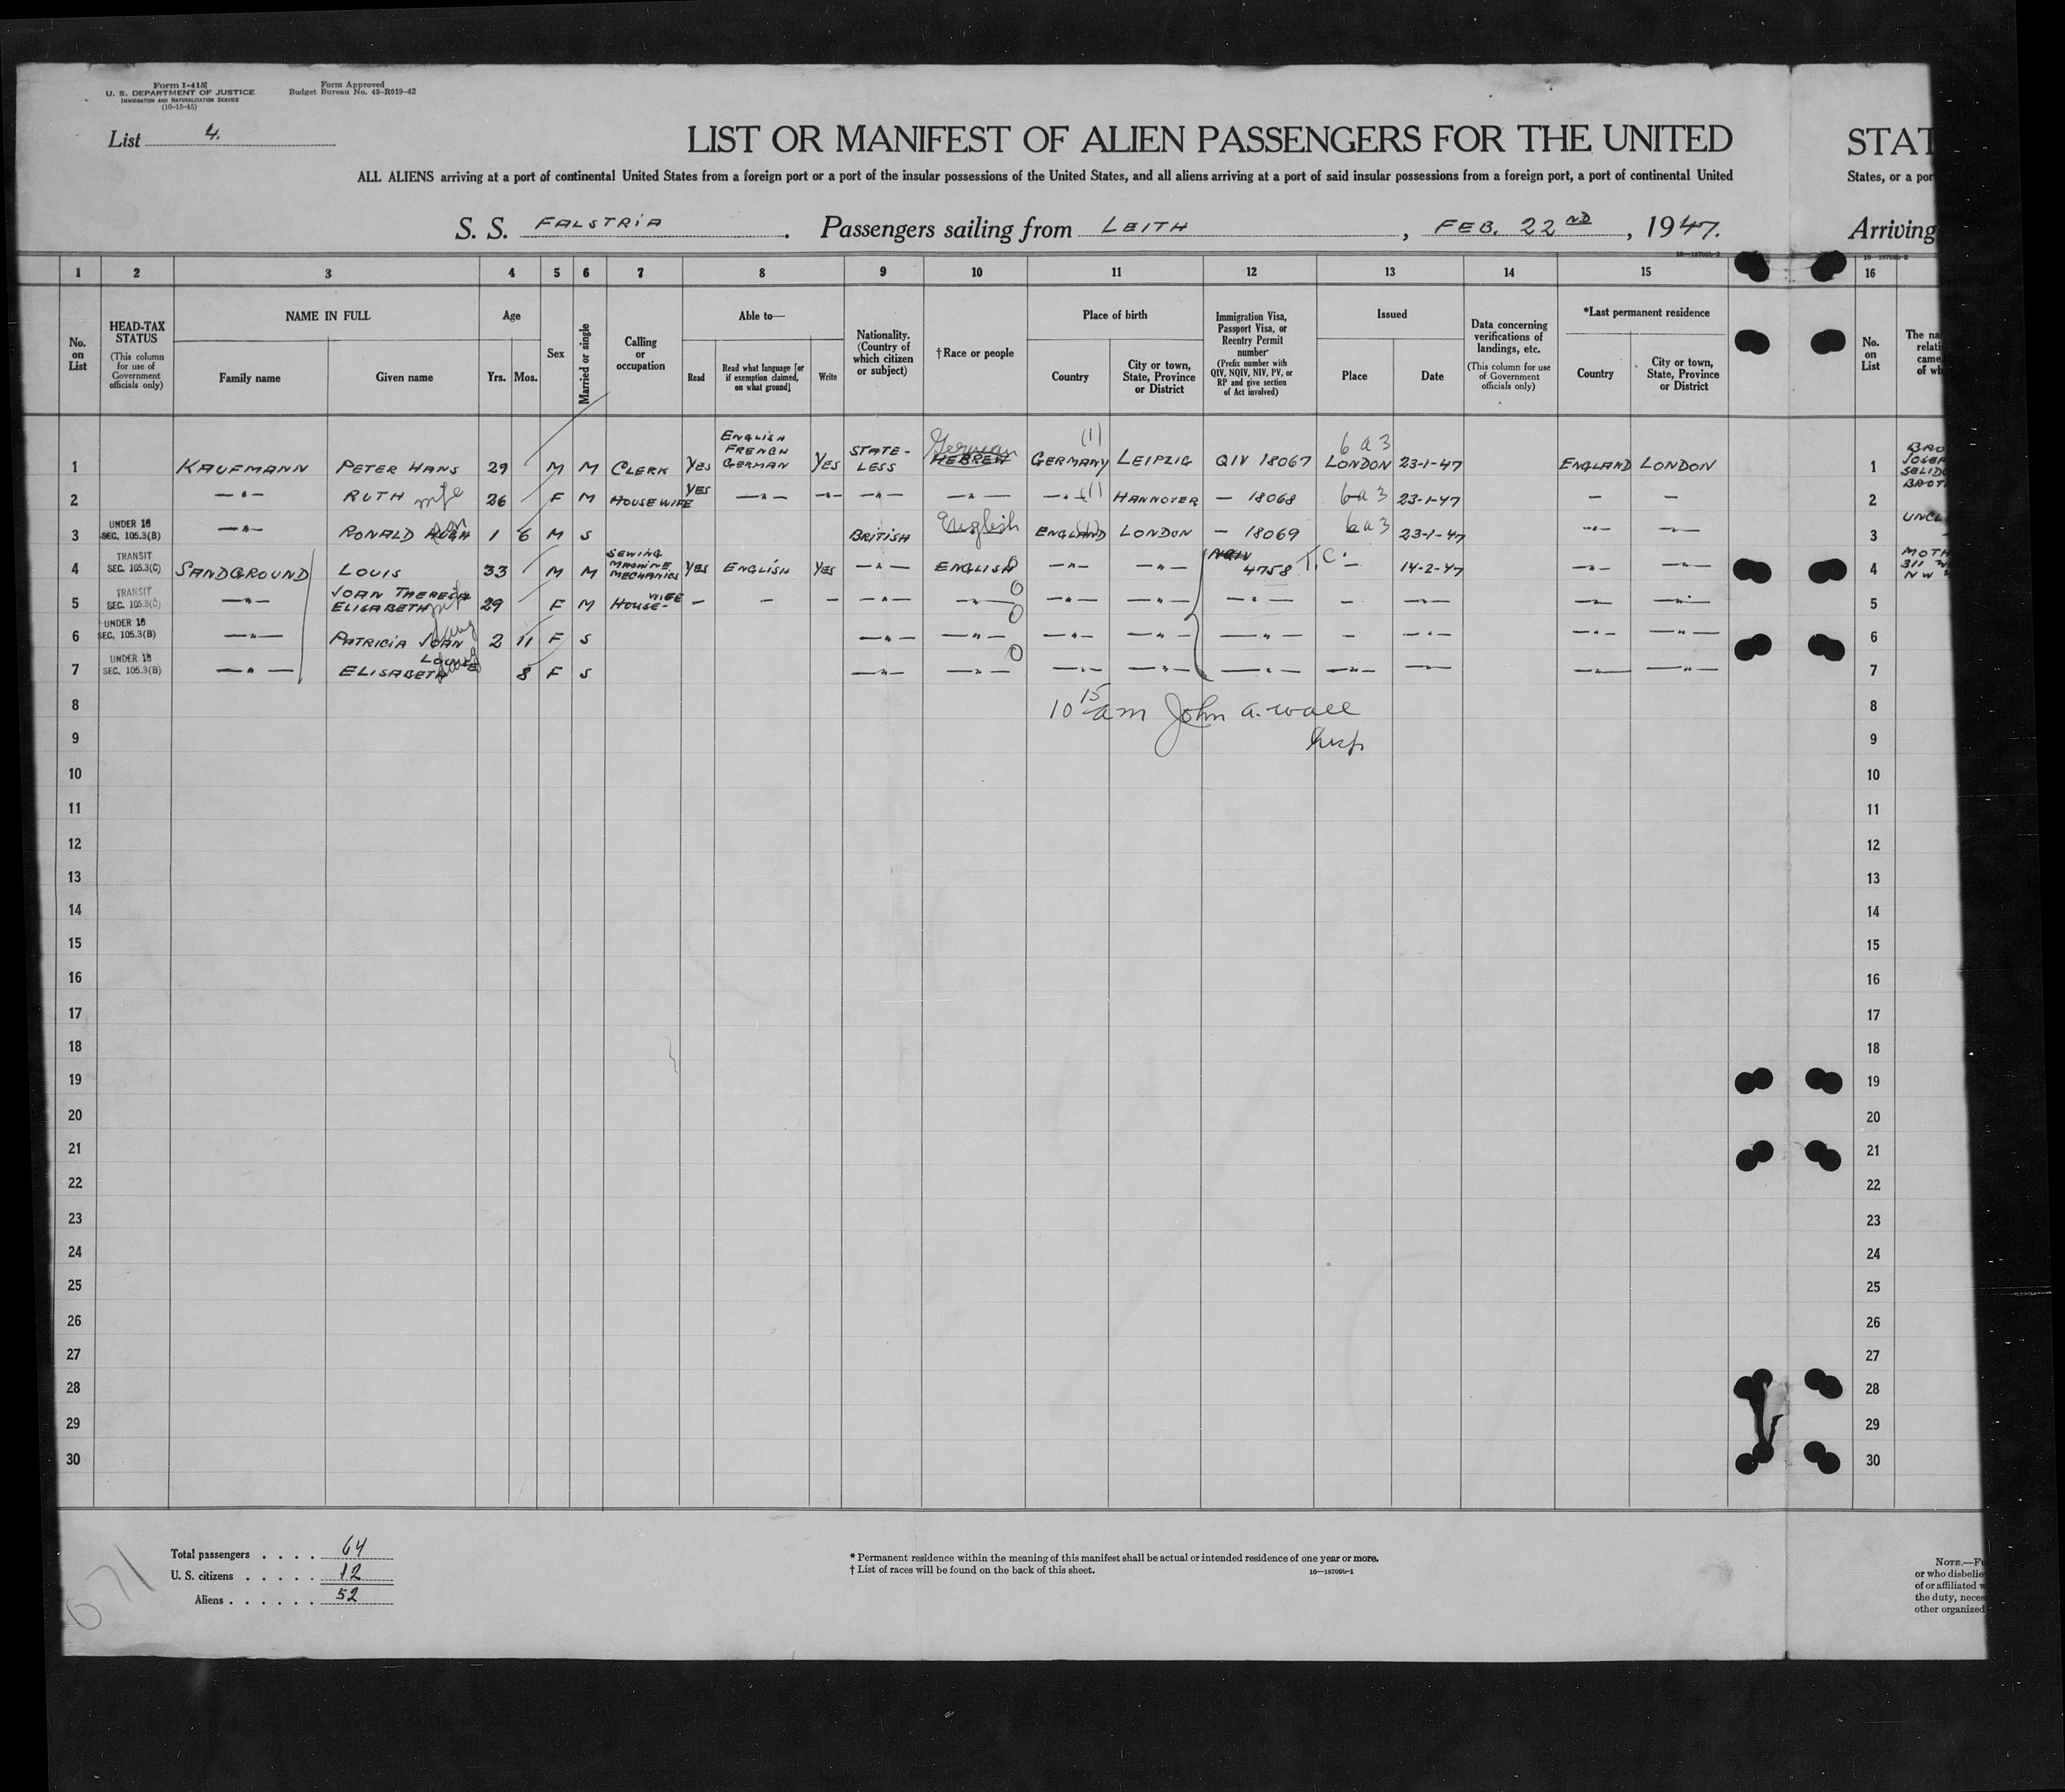 Form I-415
U. S. DEPARTMENT OF JUSTICE
IMMIGRATION AND NATURALIZATION SERVICE
(10-15-45)
Form Approved
Budget Bureau No. 43-R019-42
List 4.
LIST OR MANIFEST OF ALIEN PASSENGERS FOR THE UNITED STAT
ALL ALIENS arriving at a port of continental United States from a foreign port or a port of the insular possessions of the United States, and all aliens arriving at a port of said insular possessions from a foreign port, a port of continental United States, or a por
S. S. FALSTRIA. Passengers sailing from LEITH, FEB. 22ND, 1947. Arriving
16—18709b-2
16—18709b-2
1 2 3 4 5 6 7 8 9 10 11 12 13 14 15 16
No. on List
HEAD-TAX STATUS
(This column for use of Government officials only)
NAME IN FULL
Family name
Given name
Age
Yrs.
Mos.
Sex
Married or single
Calling or occupation
Able to—
Read
Read what language [or if exemption claimed, on what ground]
Write
Nationality. (Country of which citizen or subject)
† Race or people
Place of birth
Country
City or town, State, Province or District
Immigration Visa, Passport Visa, or Reentry Permit number
(Prefix number with QIV, NQIV, NIV, PV, or RP and give section of Act involved)
Issued
Place
Date
Data concerning verifications of landings, etc.
(This column for use of Government officials only)
*Last permanent residence
Country
City or town, State, Province or District
No. on List
The na
relati
came
of wh
1 KAUFMANN PETER HANS 29 M M CLERK YES ENGLISH FRENCH GERMAN YES STATE-LESS HEBREW German GERMANY (1) LEIPZIG QIV 18067 6a3 LONDON 23-1-47 ENGLAND LONDON 1 BRO
2 —"— RUTH wife 26 F M HOUSEWIFE YES —"— —"— —"— —"— —"— (1) HANNOVER — 18068 6a3 23-1-47 — — 2 BROT
3 UNDER 16 SEC. 105.3(B) —"— RONALD son 1 6 M S BRITISH English ENGLAND (1) LONDON — 18069 6a3 23-1-47 —"— —"— 3 UNCL
4 TRANSIT SEC. 105.3(C) SANDGROUND LOUIS 33 M M SEWING MACHINE MECHANICS YES ENGLISH YES —"— ENGLISH 0 —"— —"— NQIV 4758 T.C. — 14-2-47 —"— —"— 4 MOTH 311 W NW
5 TRANSIT SEC. 105.3(C) —"— JOAN THERESA ELISABETH wife 29 F M HOUSE-WIFE — — — —"— —"— 0 —"— —"— —"— — —"— —"— —"— 5
6 UNDER 16 SEC. 105.3(B) —"— PATRICIA JOAN daug 2 11 F S —"— —"— 0 —"— —"— —"— — —"— —"— —"— 6
7 UNDER 16 SEC. 105.3(B) —"— ELISABETH LOUISE daug 8 F S —"— —"— 0 —"— —"— —"— —"— —"— —"— —"— 7
8 10 15 am John A. Wall 8
9 Insp 9
10 10
11 11
12 12
13 13
14 14
15 15
16 16
17 17
18 18
19 19
20 20
21 21
22 22
23 23
24 24
25 25
26 26
27 27
28 28
29 29
30 30
Total passengers . . . . 64
U. S. citizens . . . . . 12
Aliens . . . . . . 52
671
* Permanent residence within the meaning of this manifest shall be actual or intended residence of one year or more.
† List of races will be found on the back of this sheet.
16—18709b-1
NOTE.—F
or who disbelie
of or affiliated w
the duty, neces
other organized